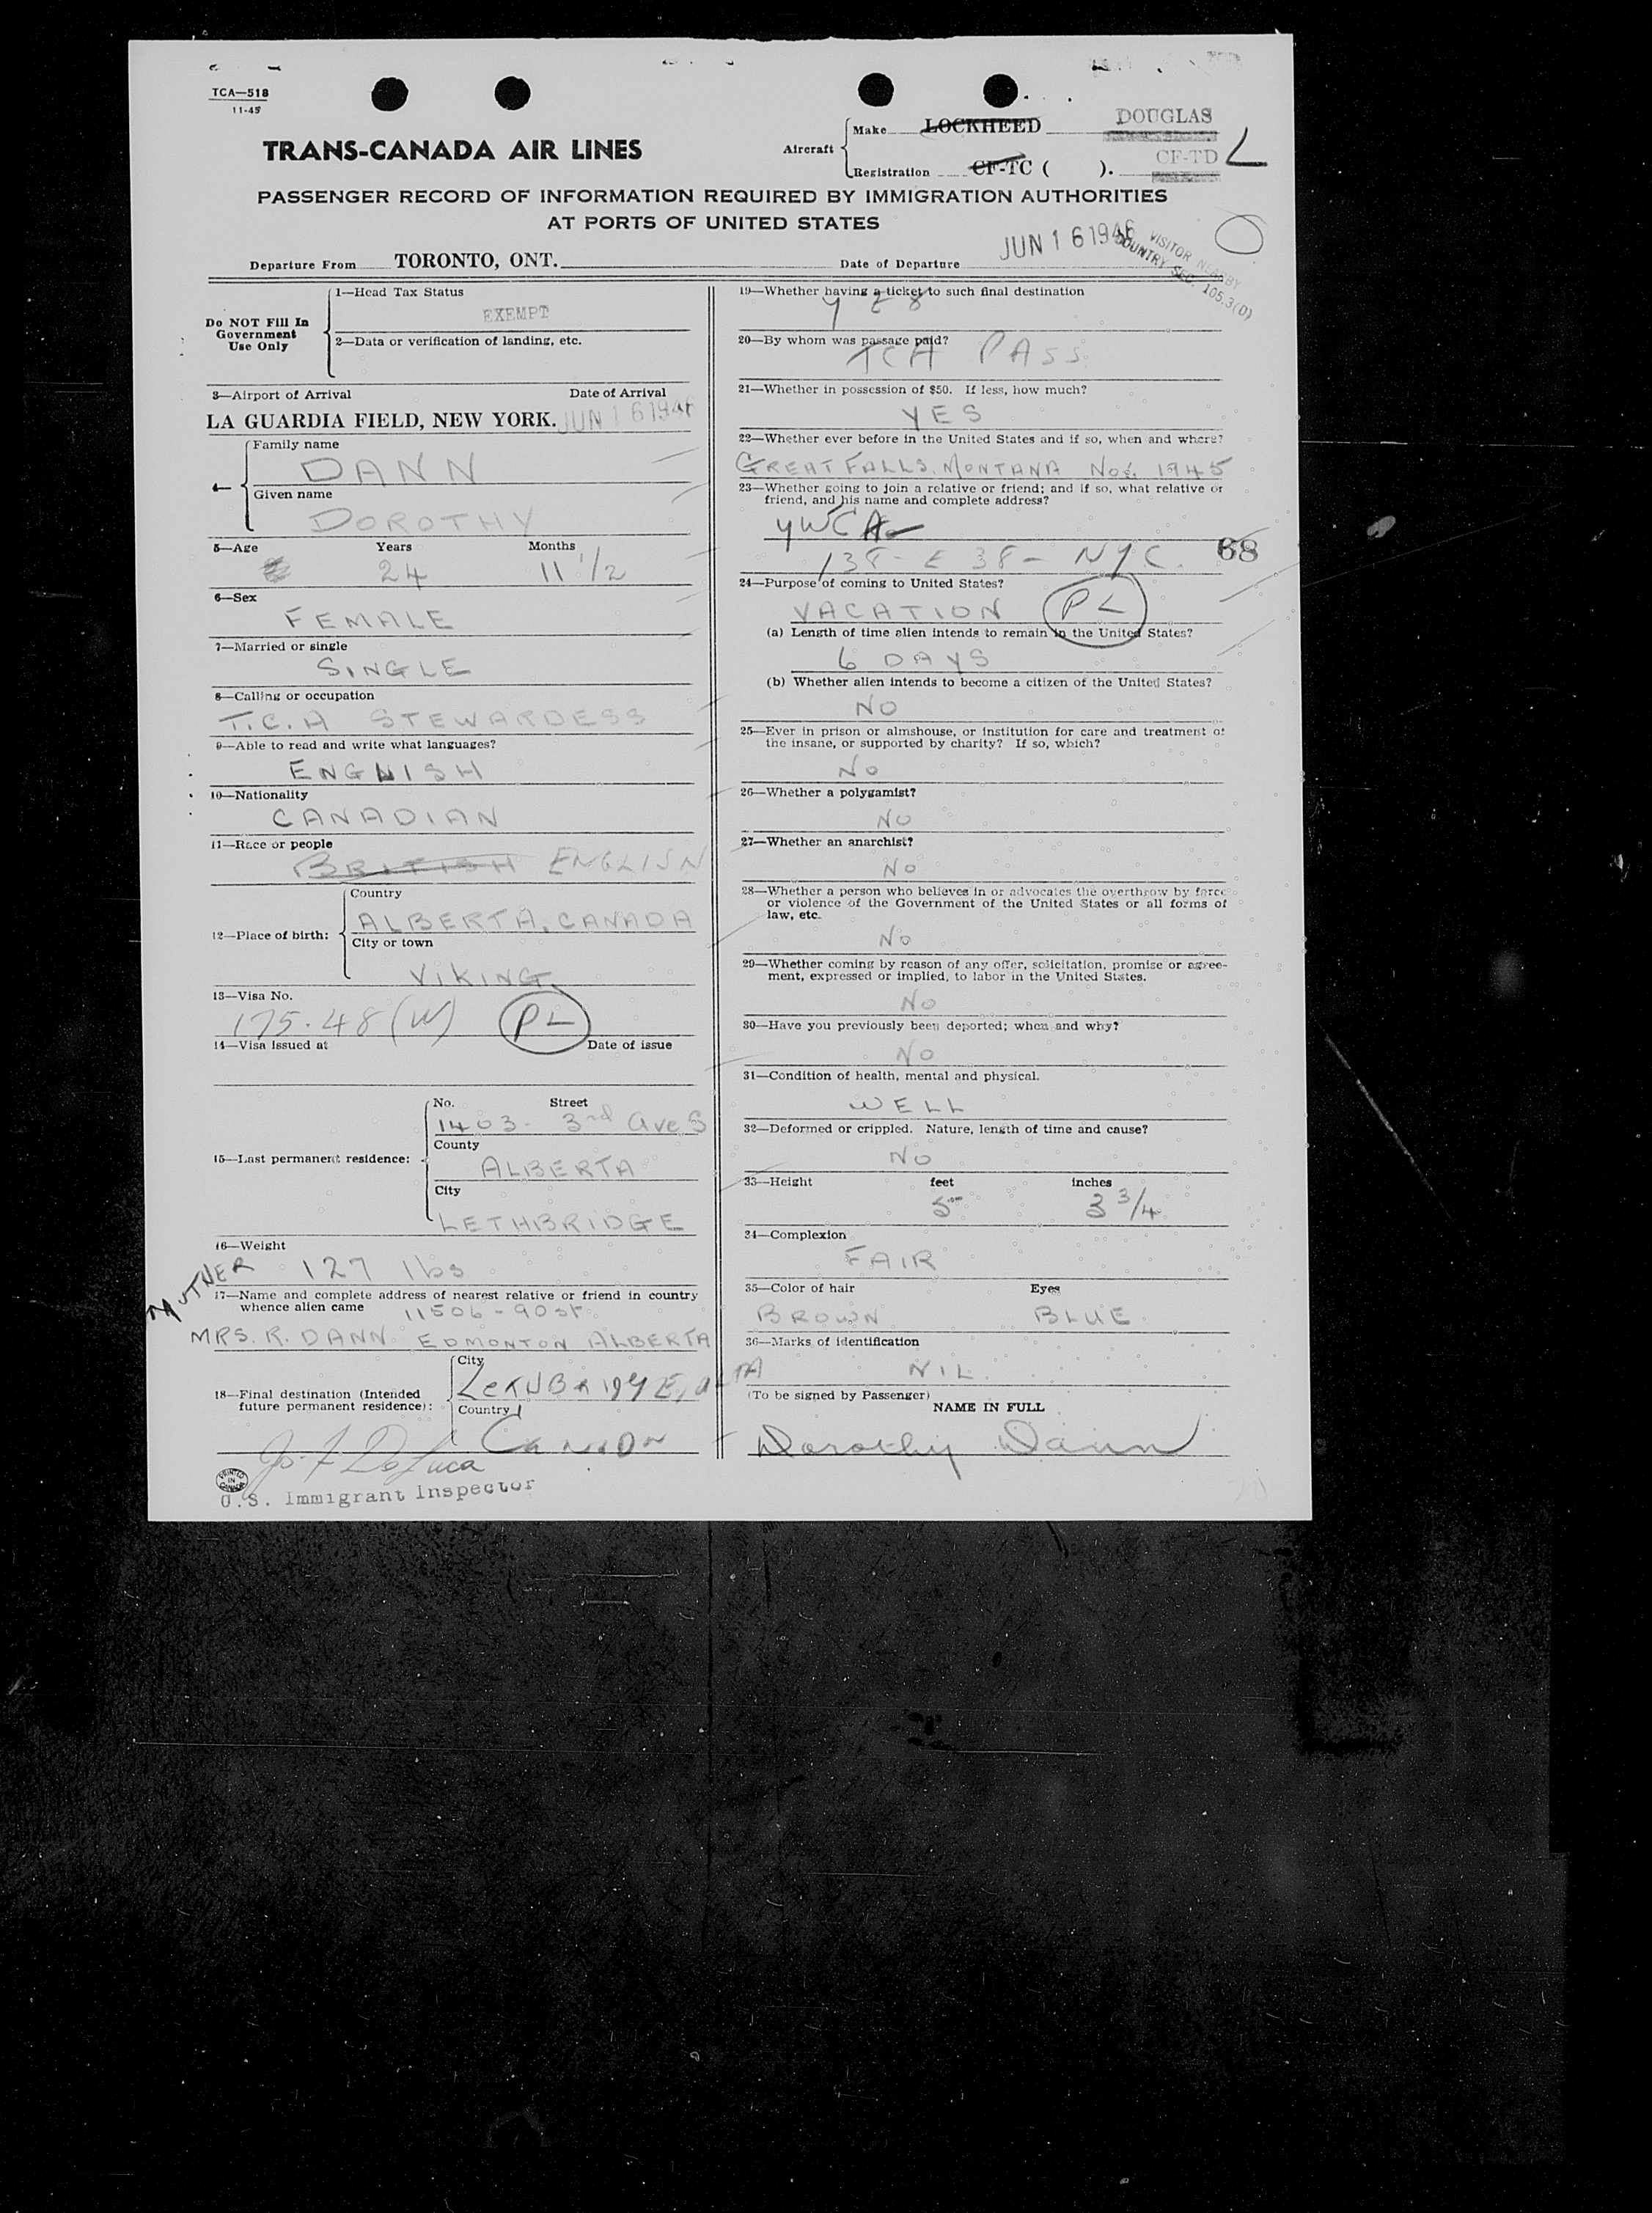 TCA—518
11-45
TRANS-CANADA AIR LINES
Aircraft
Make LOCKHEED DOUGLAS
Registration CF-TC ( ). CF-TD L
PASSENGER RECORD OF INFORMATION REQUIRED BY IMMIGRATION AUTHORITIES
AT PORTS OF UNITED STATES
Departure From TORONTO, ONT.
Date of Departure JUN 16 1946
VISITOR NEARBY
COUNTRY SEC. 105.3(D)
Do NOT Fill In
Government
Use Only
1—Head Tax Status
EXEMPT
2—Data or verification of landing, etc.
3—Airport of Arrival Date of Arrival
LA GUARDIA FIELD, NEW YORK. JUN 16 1946
4—
Family name
DANN
Given name
DOROTHY
5—Age Years Months
24 11 1/2
6—Sex
FEMALE
7—Married or single
SINGLE
8—Calling or occupation
T.C.A STEWARDESS
9—Able to read and write what languages?
ENGLISH
10—Nationality
CANADIAN
11—Race or people
BRITISH ENGLISH
12—Place of birth:
Country
ALBERTA, CANADA
City or town
VIKING.
13—Visa No.
175.48 (W) PL
14—Visa issued at Date of issue
15—Last permanent residence:
No. Street
1403- 3rd Ave S
County
ALBERTA
City
LETHBRIDGE
16—Weight
127 lbs
MOTHER
17—Name and complete address of nearest relative or friend in country
whence alien came 11506-90 st.
MRS. R. DANN EDMONTON ALBERTA
18—Final destination (Intended
future permanent residence):
City
LETHBRIDGE, ALTA
Country
Canada
Jos. F. DeLuca
PRINTED IN CANADA
U.S. Immigrant Inspector
19—Whether having a ticket to such final destination
YES
20—By whom was passage paid?
TCA PASS
21—Whether in possession of $50. If less, how much?
YES
22—Whether ever before in the United States and if so, when and where?
GREAT FALLS, MONTANA Nov. 1945
23—Whether going to join a relative or friend; and if so, what relative or
friend, and his name and complete address?
YWCA—
138- E 38- NYC.
68
24—Purpose of coming to United States?
VACATION PL
(a) Length of time alien intends to remain in the United States?
6 DAYS
(b) Whether alien intends to become a citizen of the United States?
NO
25—Ever in prison or almshouse, or institution for care and treatment of
the insane, or supported by charity? If so, which?
No
26—Whether a polygamist?
NO
27—Whether an anarchist?
No
28—Whether a person who believes in or advocates the overthrow by force
or violence of the Government of the United States or all forms of
law, etc.
No
29—Whether coming by reason of any offer, solicitation, promise or agree-
ment, expressed or implied, to labor in the United States.
No
30—Have you previously been deported; when and why?
No
31—Condition of health, mental and physical.
WELL
32—Deformed or crippled. Nature, length of time and cause?
No
33—Height feet inches
5 3 3/4
34—Complexion
FAIR
35—Color of hair Eyes
BROWN BLUE
36—Marks of identification
NIL.
(To be signed by Passenger)
NAME IN FULL
Dorothy Dann